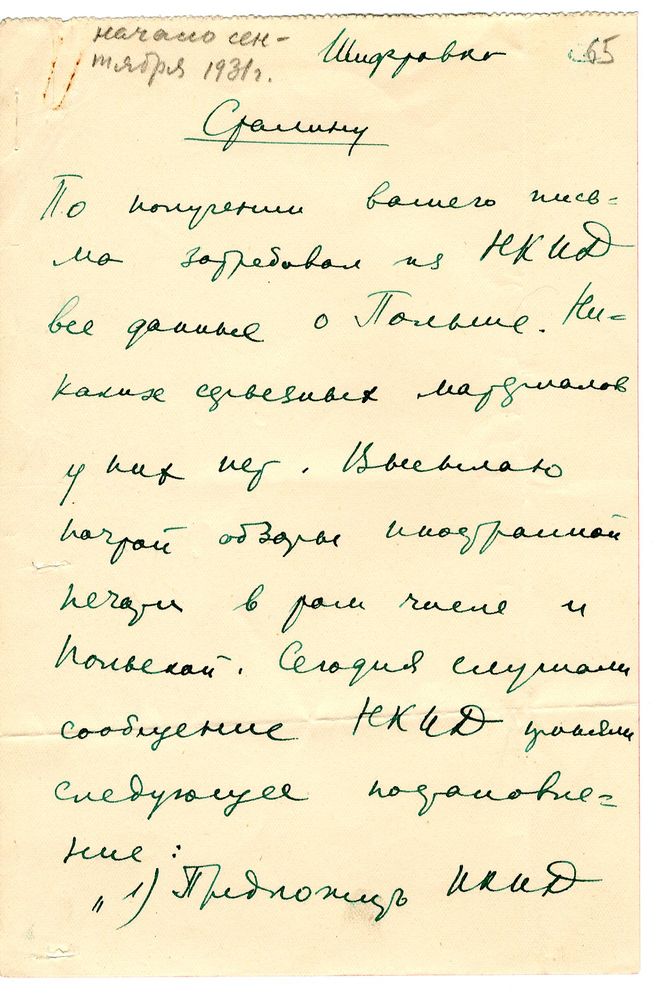 начало сен-
тября 1931г.
Шифровка
65
Сталину
По получении вашего пись=
ма затребовал из НКИД
все данные о Польше. Ни=
каких серьезных материалов
у них нет. Высылаю
почтой обзоры иностранной
печати в том числе и
польской. Сегодня слушали
сообщение НКИД приняли
следующее постановле=
ние:
„1) Предложить НКИД